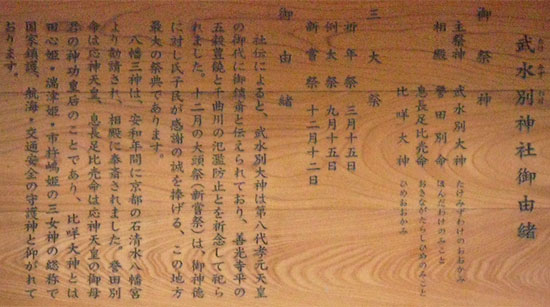 武水別神社御由緒
たけみずわけ
御祭神
主祭神 武水別大神 たけみずわけのおおかみ
相殿 誉田別命 ほんだわけのみこと
息長足比売命 おきながたらしひめのみこと
比咩大神 ひめおおかみ
三大祭
祈年祭 三月十五日
例大祭 九月十五日
新嘗祭 十二月十二日
御由緒
社伝によると、武水別大神は第八代孝元天皇
の御代に御鎮斎と伝えられており、善光寺平の
五穀豊饒と千曲川の氾濫防止とを祈念して祀ら
れました。十二月の大頭祭(新嘗祭)は、御神徳
に対し氏子氏が感謝の誠を捧げる、この地方
最大の祭典であります。
八幡三神は、安和年間に京都の石清水八幡宮
より勧請され、相殿に奉斎されました。誉田別
命は応神天皇、息長足比売命は応神天皇の御母
君の神功皇后のことであり、比咩大神とは
田心姫・湍津姫・市杵嶋姫の三女神の総称で
国家鎮護、航海・交通安全の守護神と仰がれて
おります。